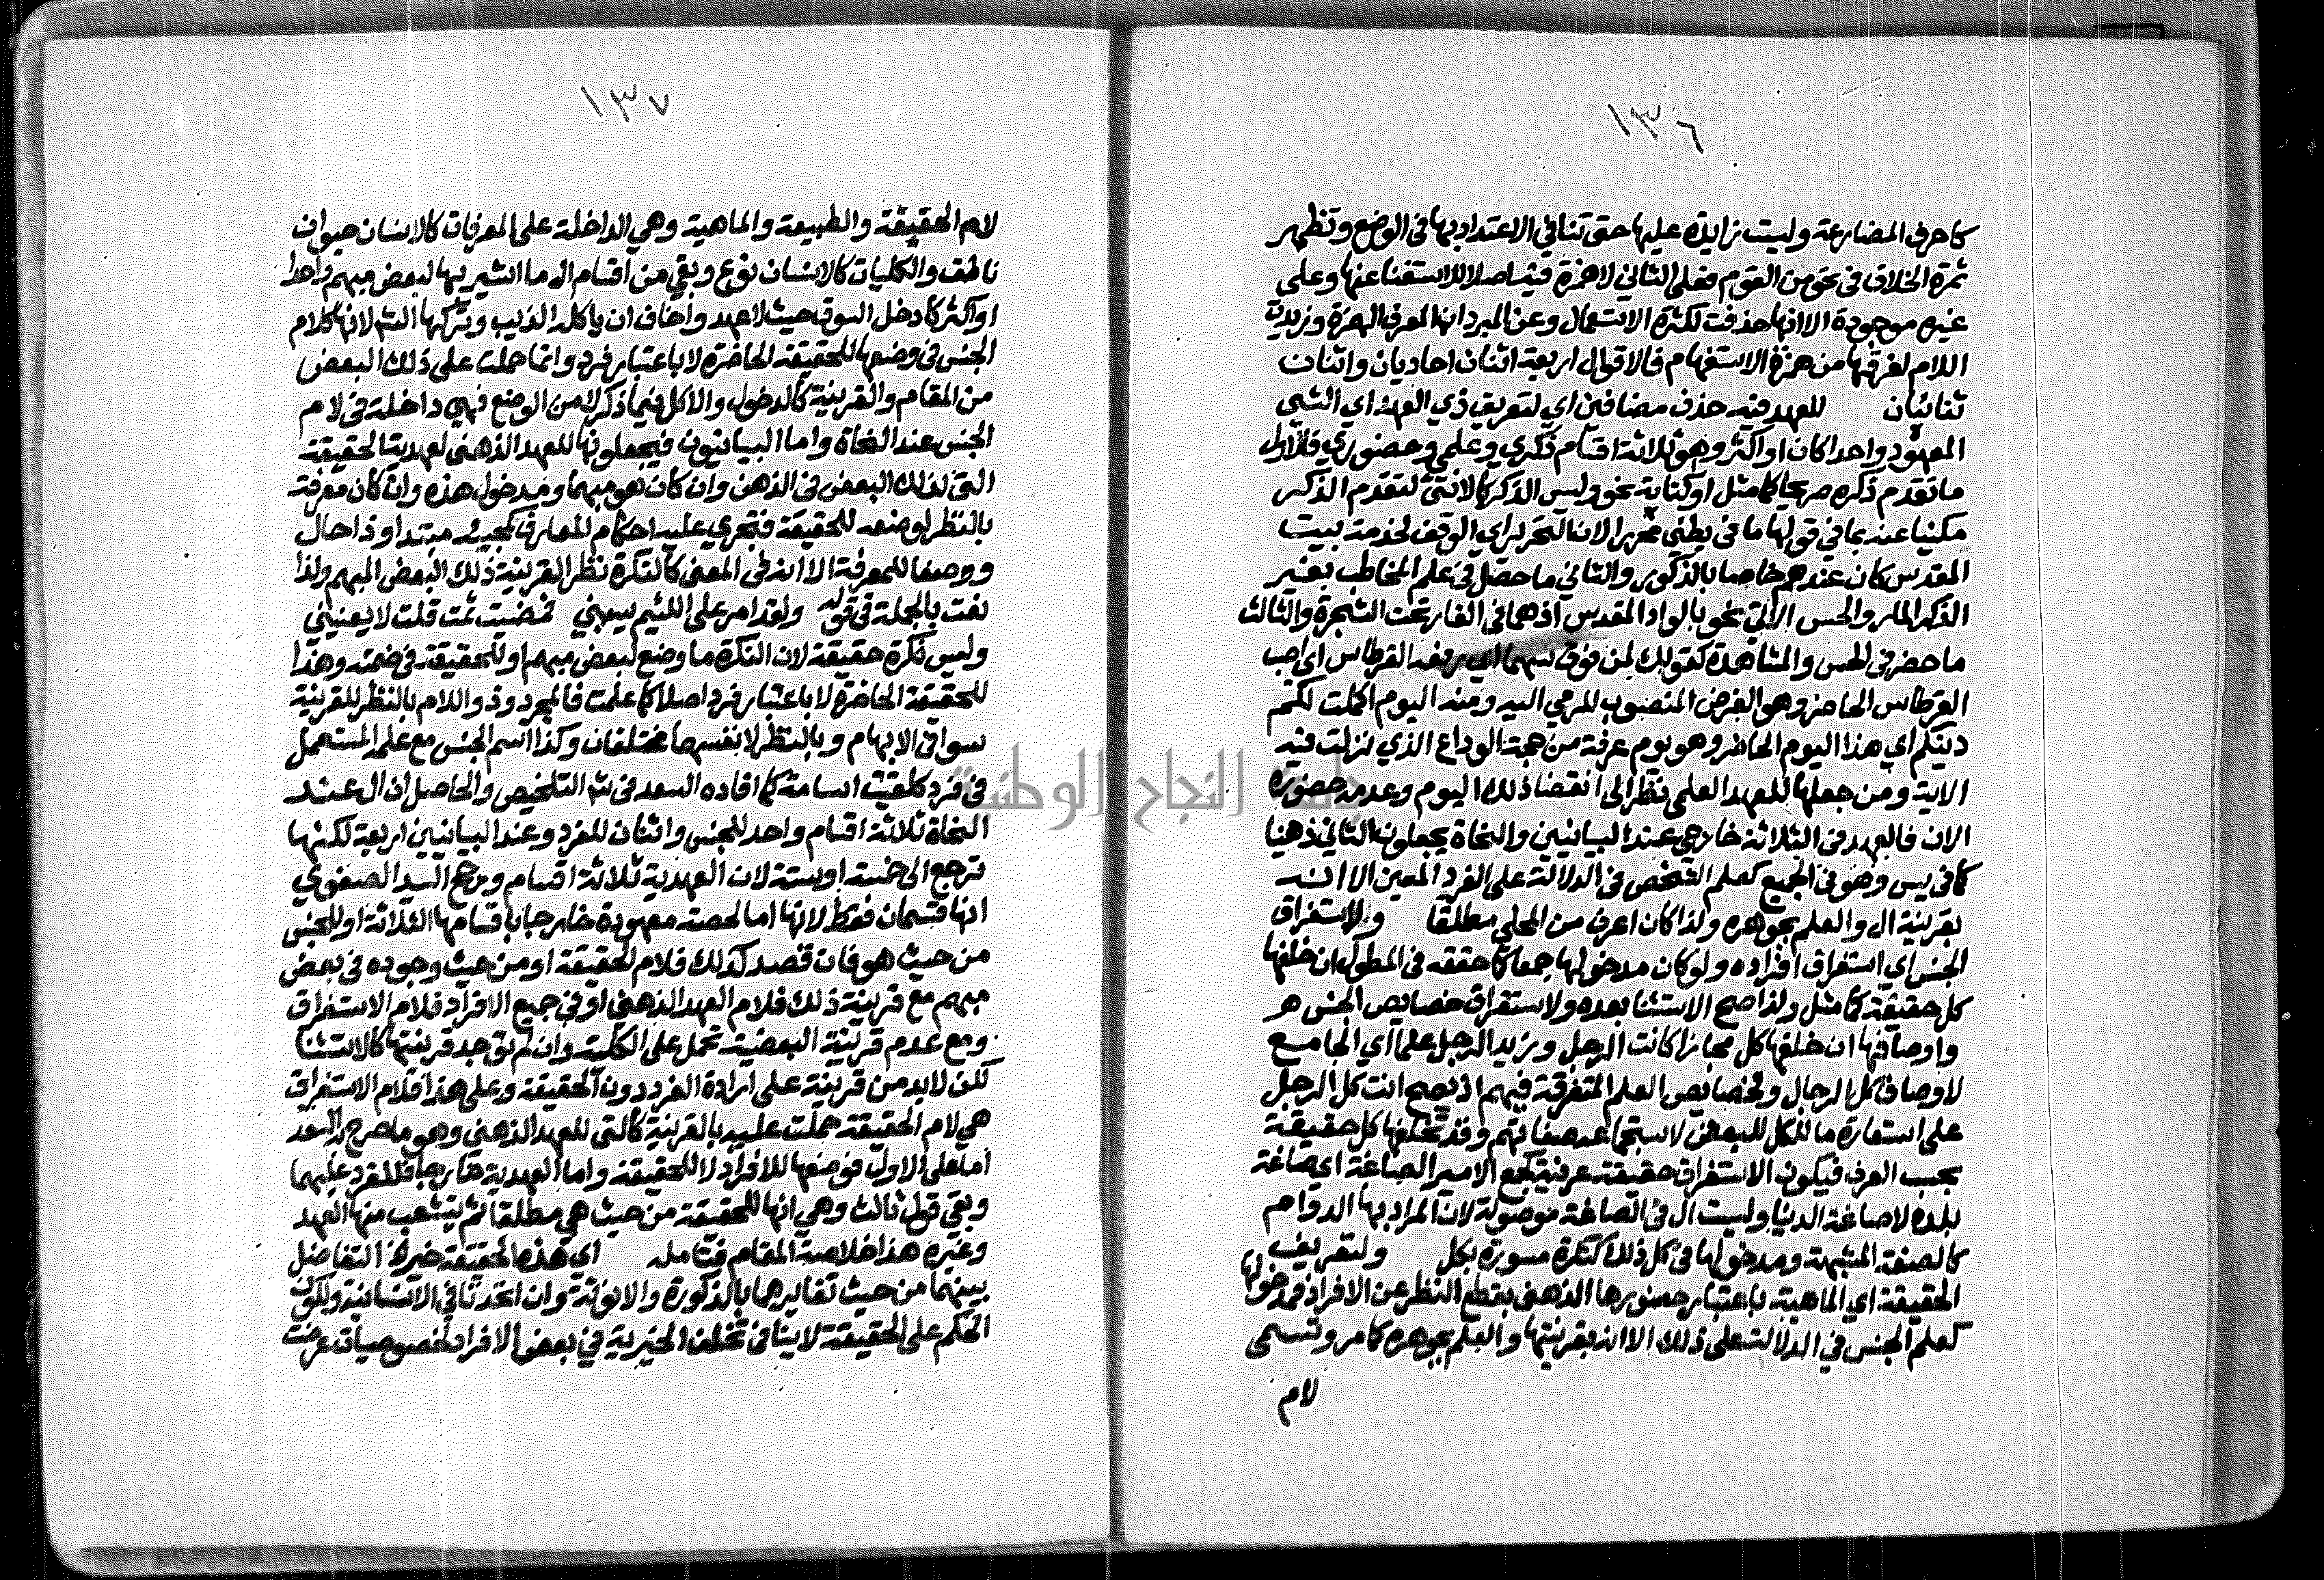 ١٣٦
كاحرف المضارعة وليست زايدة عليها حتى تنافي الاعتداد بها في الوضع وتظهر
ثمرة الخلاف في نحو من القوم فعلى الثاني لا همزة فيه اصلا للاستغنا عنها وعلى
غيره موجودة الا انها حذفت لكثرة الاستعمال وعن المبرد انها المعرف الهمزة وزيدت
اللام لفرقها من همزة الاستفهام فالاقوال اربعة اثنان احاديان واثنان
ثنائيان للعهد فيه حذف مضافين اي لتعريف ذي العهد اي الشي
المعهود واحدا كان او اكثر وهو ثلاثة اقسام ذكري وعلمي وحضوري فالاول
ما تقدم ذكره صريحا كما مثل او كناية نحو وليس الذكر كالانثى لتقدم الذكر
مكنيا عنه بما في قولها ما في بطني محررا لان التحرير اي الوقف لخدمة بيت
المقدس كان عندهم خاصا بالذكور والثاني ما حصل في علم المخاطب بغير
الذكر المار والحس الاتي نحو بالواد المقدس اذ هما في الغار تحت الشجرة والثالث
ما حضر في الحس والمشاهدة كقولك لمن فوق سهما القرطاس اي اصب
القرطاس الحاضر وهو الغرض المنصوب للمرمي اليه ومنه اليوم اكملت لكم
دينكم اي هذا اليوم الحاضر وهو يوم عرفة من حجة الوداع الذي نزلت فيه
الاية ومن جعلها للعهد العلمي نظر الى انقضا ذلك اليوم وعدم حضوره
الان فالعهد في الثلاثة خارجي عند البيانيين والنحاة يجعلون الثاني ذهنيا
كما في يس وهو في الجميع كعلم الشخص في الدلالة على الفرد المعين الا انه
بقرينة ال والعلم بجوهره ولذا كان اعرف من المحلي مطلقا ولاستغراق
الجنس اي استغراق افراده ولو كان مدخولها جمعا كما حققه في المطول ان خلفها
كل حقيقة كما مثل ولذا صح الاستثنا بعده ولاستغراق خصايص الجنس هو
واوصافها ان خلفها كل مجازا كانت الرجل وزيد الرجل علما اي الجامع
لاوصاف كل الرجال ولخصايص العلم المتفرقة فيهم اذ يصح انت كل الرجل
على استعارة ما للكل للبعض لاستجماعه صفاتهم وقد تخلفها كل حقيقة
بحسب العرف فيكون الاستغراق حقيقة عرفية كجمع الامير الصاغة اي صاغة
بلده لا صاغة الدنيا وليست ال في الصاغة موصولة لان المراد بها الدوام
كالصفة المشبهة ومدخولها في كل ذلك كنكرة مسورة بكل ولتعريف
الحقيقة اي الماهية باعتبار حضورها الذهني بقطع النظر عن الافراد فمدخولها
كعلم الجنس في الدلالة على ذلك الا انه بقرينتها والعلم بجوهره كما مر وتسمى
لام
١٣٧
لام الحقيقة والطبيعة والماهية وهي الداخلة على المعرفات كالانسان حيوان
ناطق والكليات كالانسان نوع وبقي من اقسام ال ما اشير بها لبعض مبهم واحدا
او اكثر كادخل السوق حيث لا عهد واخاف ان ياكله الذيب وتركها الش لانها كلام
الجنس في وضعها للحقيقة الحاضرة لا باعتبار فرد وانما حملت على ذلك البعض
من المقام والقرينة كالدخول والاكل فيما ذكر لا من الوضع فهي داخلة في لام
الجنس عند النحاة واما البيانيون فيجعلونها للعهد الذهني لعهدية الحقيقة
التي لذلك البعض في الذهن وان كان هو مبهما ومدخول هذه وان كان معرفة
بالنظر لوضعه للحقيقة فتجري عليه احكام المعارف كمجيئه مبتدا وذا حال
ووصفا للمعرفة الا انه في المعنى كالنكرة نظرا لقرينة ذلك البعض المبهم ولذا
نعت بالجملة في قوله ولقد امر على اللئيم يسبني فمضيت ثمت قلت لا يعنيني
وليس نكرة حقيقة لان النكرة ما وضع لبعض مبهم او للحقيقة في ضمنه وهذا
للحقيقة الحاضرة لا باعتبار فرد اصلا كما علمت فالمجرد وذو اللام بالنظر للقرينة
سوا في الابهام وبالنظر لانفسهما مختلفان وكذا اسم الجنس مع علمه المستعمل
في فرد كلقيت اسامة كما افاده السعد في ش التلخيص والحاصل ان ال عند
النحاة ثلاثة اقسام واحد للجنس واثنان للفرد وعند البيانيين اربعة لكنها
ترجع الى خمسة او ستة لان العهدية ثلاثة اقسام ورجح السيد الصفوي
انها قسمان فقط لانها اما لحصة معهودة خارجا باقسامها الثلاثة او للجنس
من حيث هو فان قصد كذلك فلام الحقيقة او من حيث وجوده في بعض
مبهم مع قرينة ذلك فلام العهد الذهني او في جميع الافراد فلام الاستغراق
ومع عدم قرينة البعضية تحمل على الكلية وان لم توجد قرينتها كالاستثنا
لكن لا بد من قرينة على ارادة الفرد دون الحقيقة وعلى هذا فلام الاستغراق
هي لام الحقيقة حملت عليه بالقرينة كالتي للعهد الذهني وهو ما صرح به السعد
اما على الاول فوضعها للافراد لا للحقيقة واما العهدية خارجا فللفرد عليهما
وبقي قول ثالث وهي انها للحقيقة من حيث هي مطلقا ثم يتشعب منها العهد
وغيره هذا خلاصة المقام فتامله اي هذه الحقيقة خير التفاضل
بينهما من حيث تغايرهما بالذكورة والانوثة وان اتحدتا في الانسانية ولكون
الحكم على الحقيقة لا ينافي تخلف الخيرية في بعض الافراد لخصوصيات عرضت